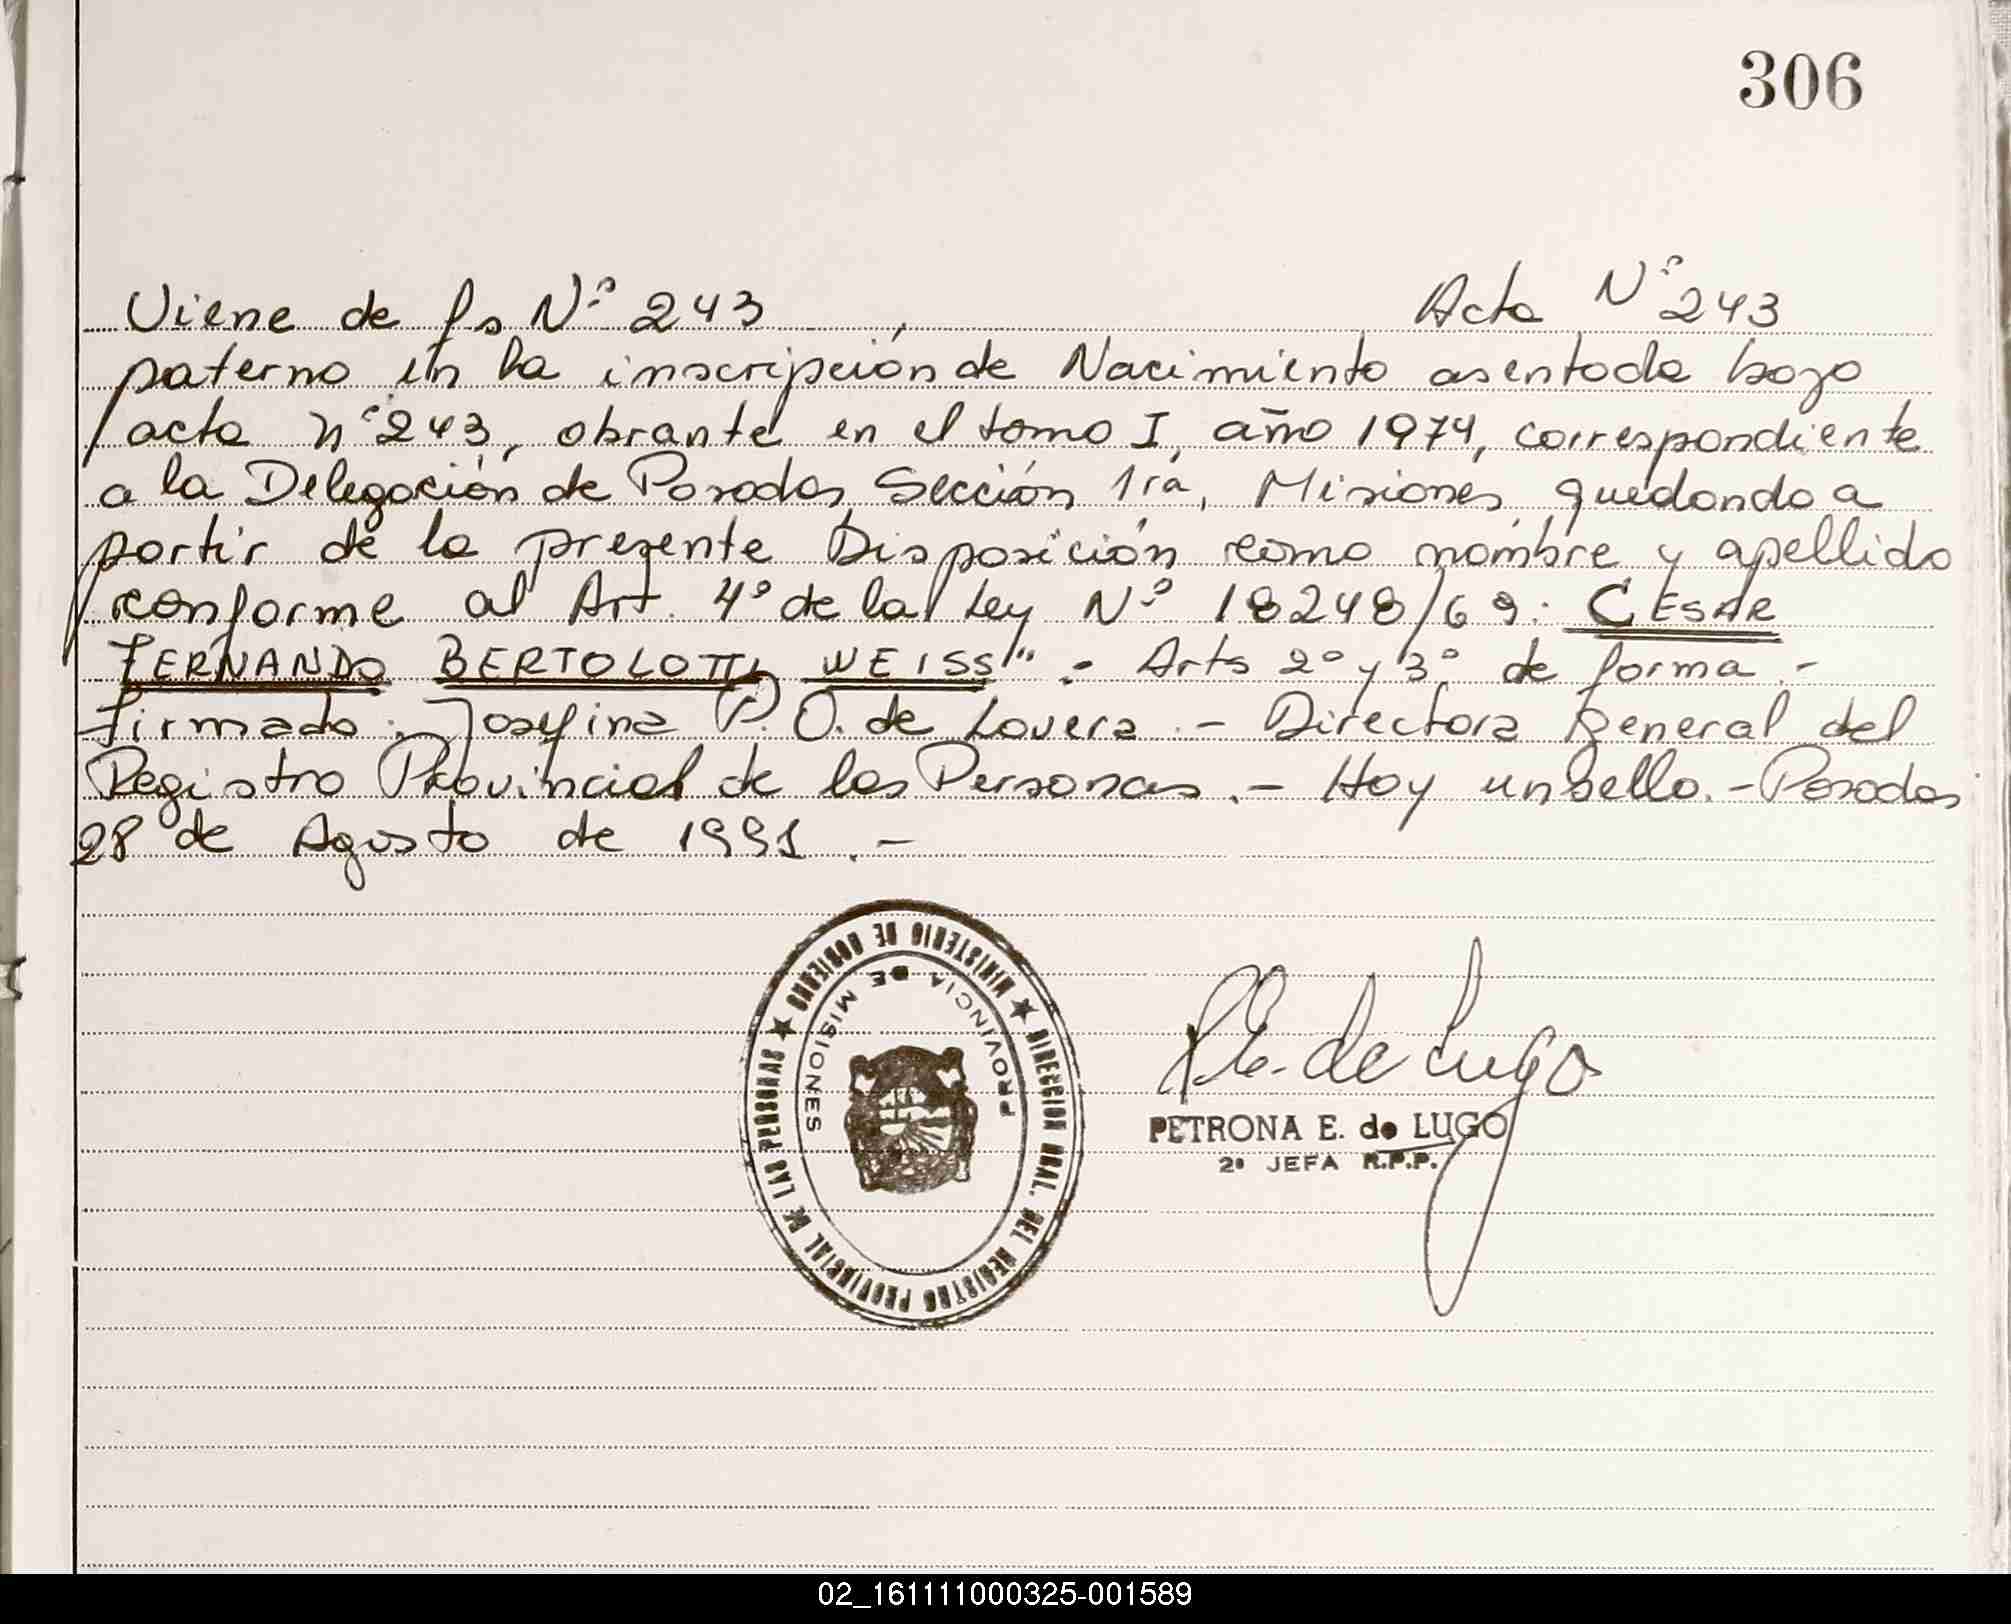 306
Viene de fs Nº 243 Acta Nº 243
paterno en la inscripción de Nacimiento asentada bajo
acta nº 243, obrante en el tomo I, año 1974, correspondiente
a la Delegación de Posadas, Sección 1ra, Misiones, quedando a
partir de la presente Disposición como nombre y apellido
conforme al Art. 4º de la Ley Nº 18248/69: CESAR
FERNANDO BERTOLOTTI WEISS". Arts 2º y 3º de forma.-
Firmado: Josefina P. O. de Lovera.- Directora General del
Registro Provincial de las Personas.- Hay un sello.- Posadas
28 de Agosto de 1991.-
★ MINISTERIO DE GOBIERNO ★
DIRECCION GRAL. DEL REGISTRO PROVINCIAL DE LAS PERSONAS
PROVINCIA DE MISIONES
P. E. de Lugo
PETRONA E. de LUGO
2º JEFA R.P.P.
02_161111000325-001589